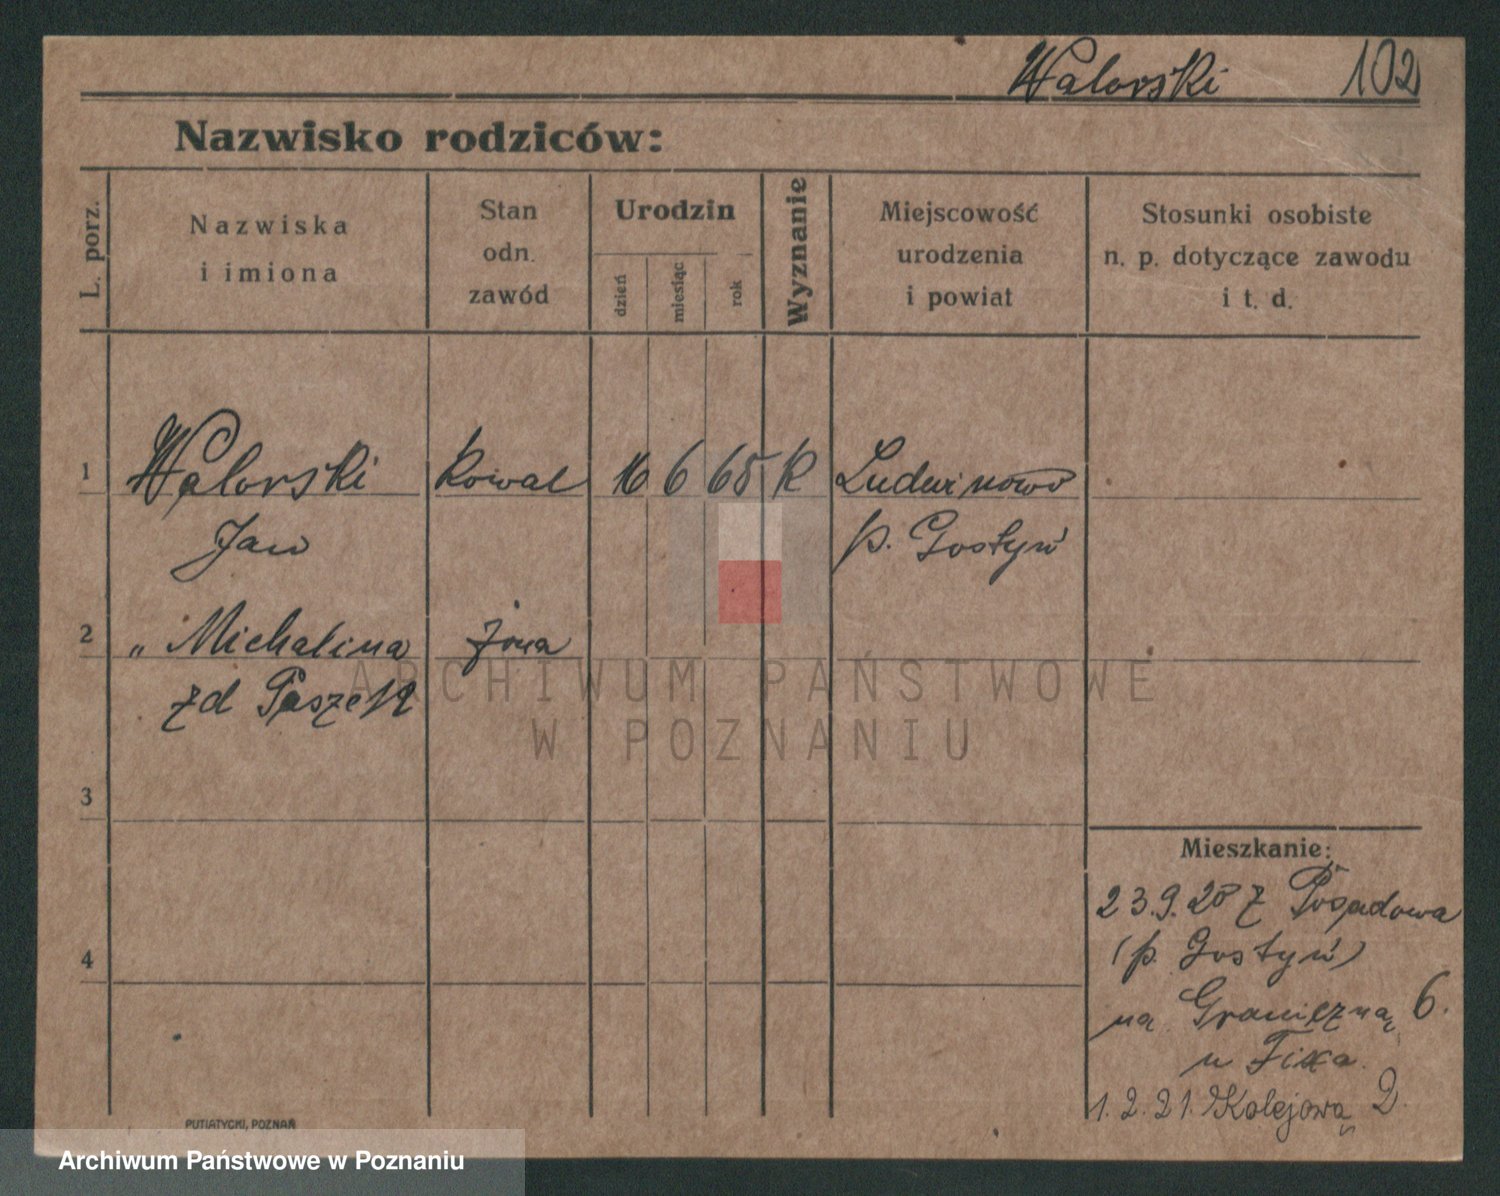 Walorski 102
Nazwisko rodziców:
L. porz.
Nazwiska
i imiona
Stan
odn.
zawód
Urodzin
dzień
miesiąc
rok
Wyznanie
Miejscowość
urodzenia
i powiat
Stosunki osobiste
n. p. dotyczące zawodu
i t. d.
1 Walorski Kowal 16 6 65 K Ludwinowo
Jan p. Gostyń
2 „ Michalina żona
zd Paszek
3
4
Mieszkanie:
23.9.20 z Posadowa
(p. Gostyń)
na Graniczną 6.
u Fixa.
1.2.21. Kolejową 2.
PUTIATYCKI, POZNAŃ
ARCHIWUM PAŃSTWOWE
W POZNANIU
Archiwum Państwowe w Poznaniu